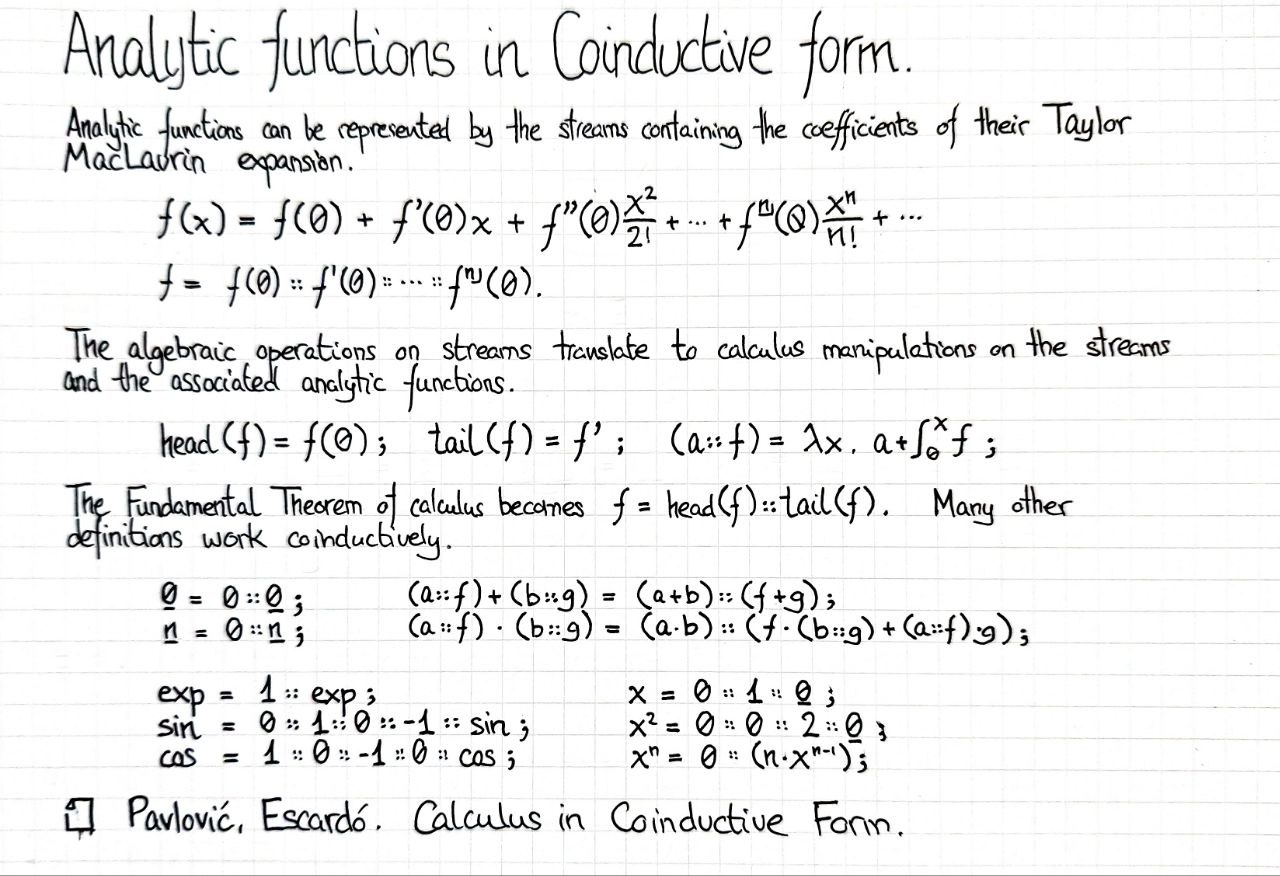 Analytic functions in Coinductive form.
Analytic functions can be represented by the streams containing the coefficients of their Taylor
MacLaurin expansion.
f(x) = f(0) + f'(0)x + f''(0) x²/2! + ··· + f⁽ⁿ⁾(0) xⁿ/n! + ···
f = f(0) :: f'(0) :: ··· :: f⁽ⁿ⁾(0).
The algebraic operations on streams translate to calculus manipulations on the streams
and the associated analytic functions.
head(f) = f(0); tail(f) = f'; (a::f) = λx. a+∫₀ˣf;
The Fundamental Theorem of calculus becomes f = head(f)::tail(f). Many other
definitions work coinductively.
0̲ = 0::0̲; (a::f)+(b::g) = (a+b)::(f+g);
n̲ = 0::n̲; (a::f)·(b::g) = (a·b)::(f·(b::g)+(a::f)·g);
exp = 1::exp; x = 0::1::0̲;
sin = 0::1::0::-1::sin; x² = 0::0::2::0̲;
cos = 1::0::-1::0::cos; xⁿ = 0::(n·xⁿ⁻¹);
Pavlović, Escardó. Calculus in Coinductive Form.